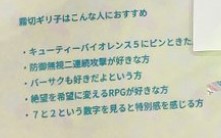 霧切ギリ子はこんな人におすすめ
・キューティーバイオレンス5にピンときた
・防御無視二連続攻撃が好きな方
・バーサクも好きだよという方
・絶望を希望に変えるRPGが好きな方
・7と2という数字を見ると特別感を感じる方